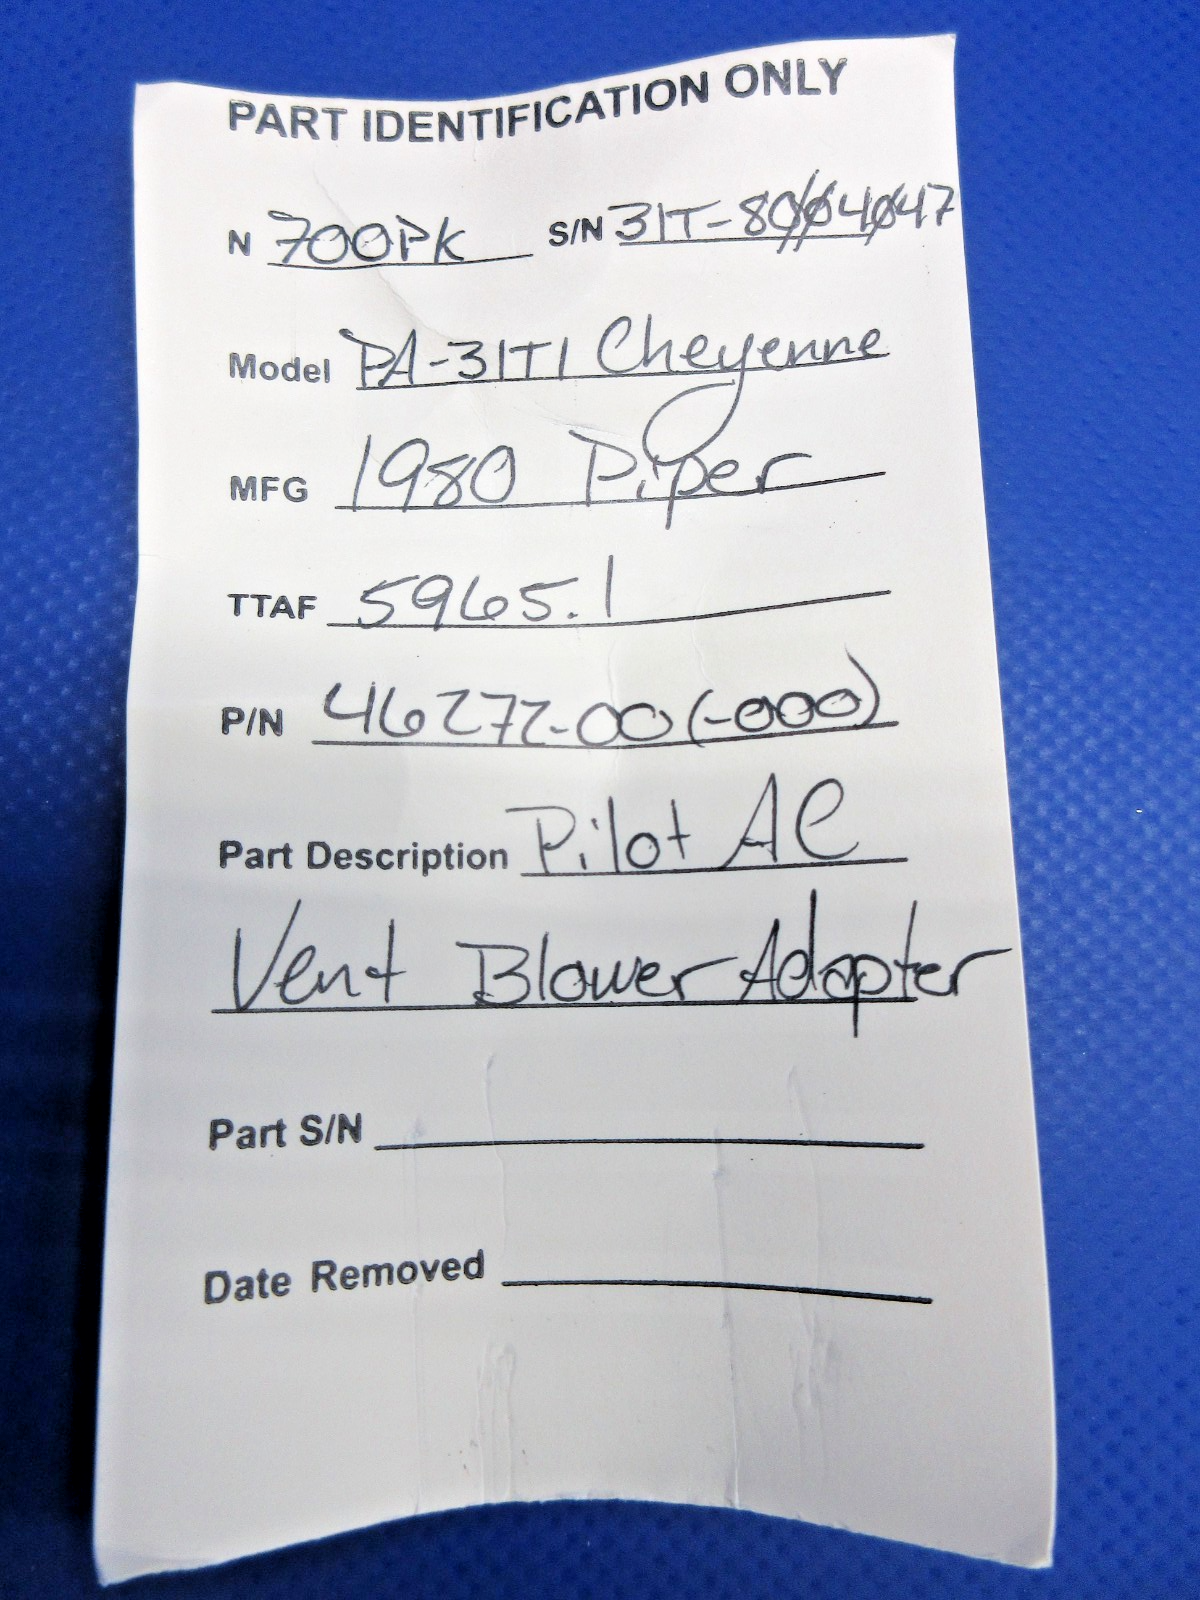 PART IDENTIFICATION ONLY
N 700PK S/N 31T-8004047
Model PA-31T1 Cheyenne
MFG 1980 Piper
TTAF 5965.1
P/N 46272-00 (-000)
Part Description Pilot AC
Vent Blower Adapter
Part S/N
Date Removed